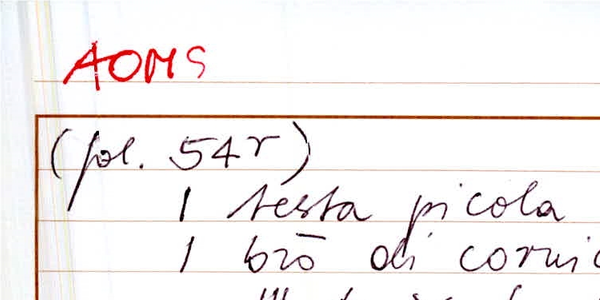 AOMS
(fol. 54r)
1 testa picola
1 brō di cornic